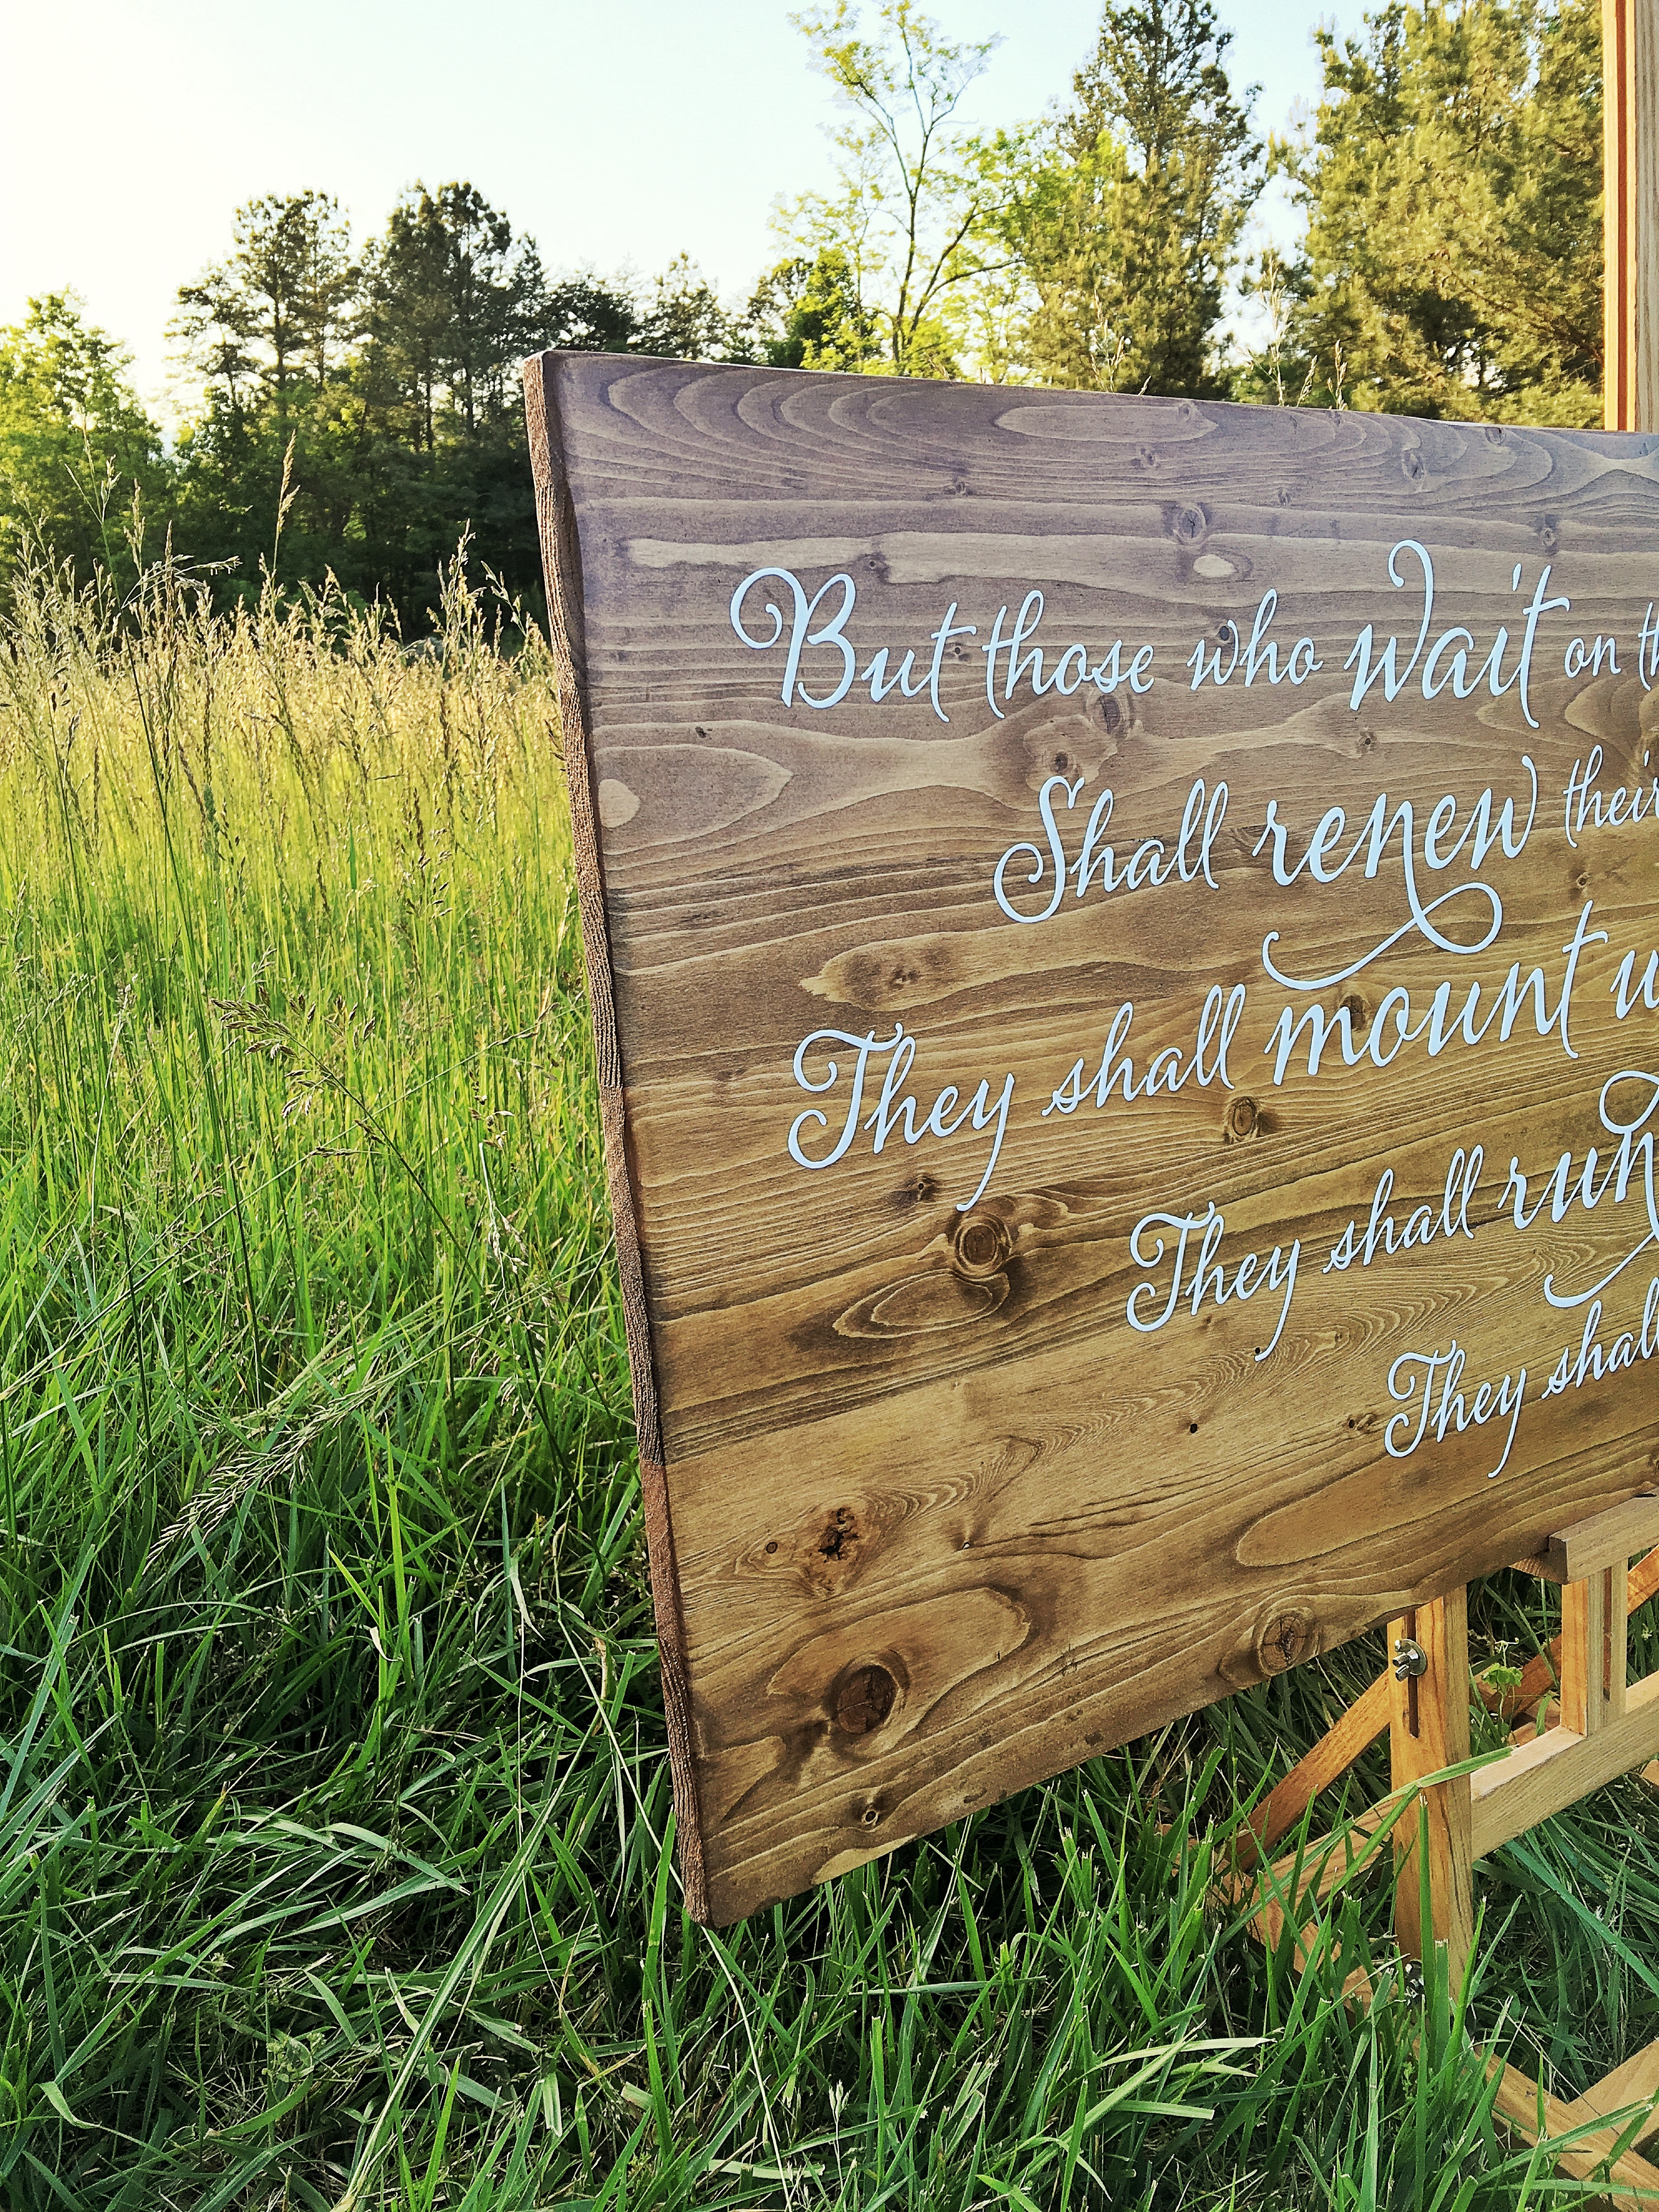 But those who wait on th
Shall renew their
They shall mount u
They shall run
They shall